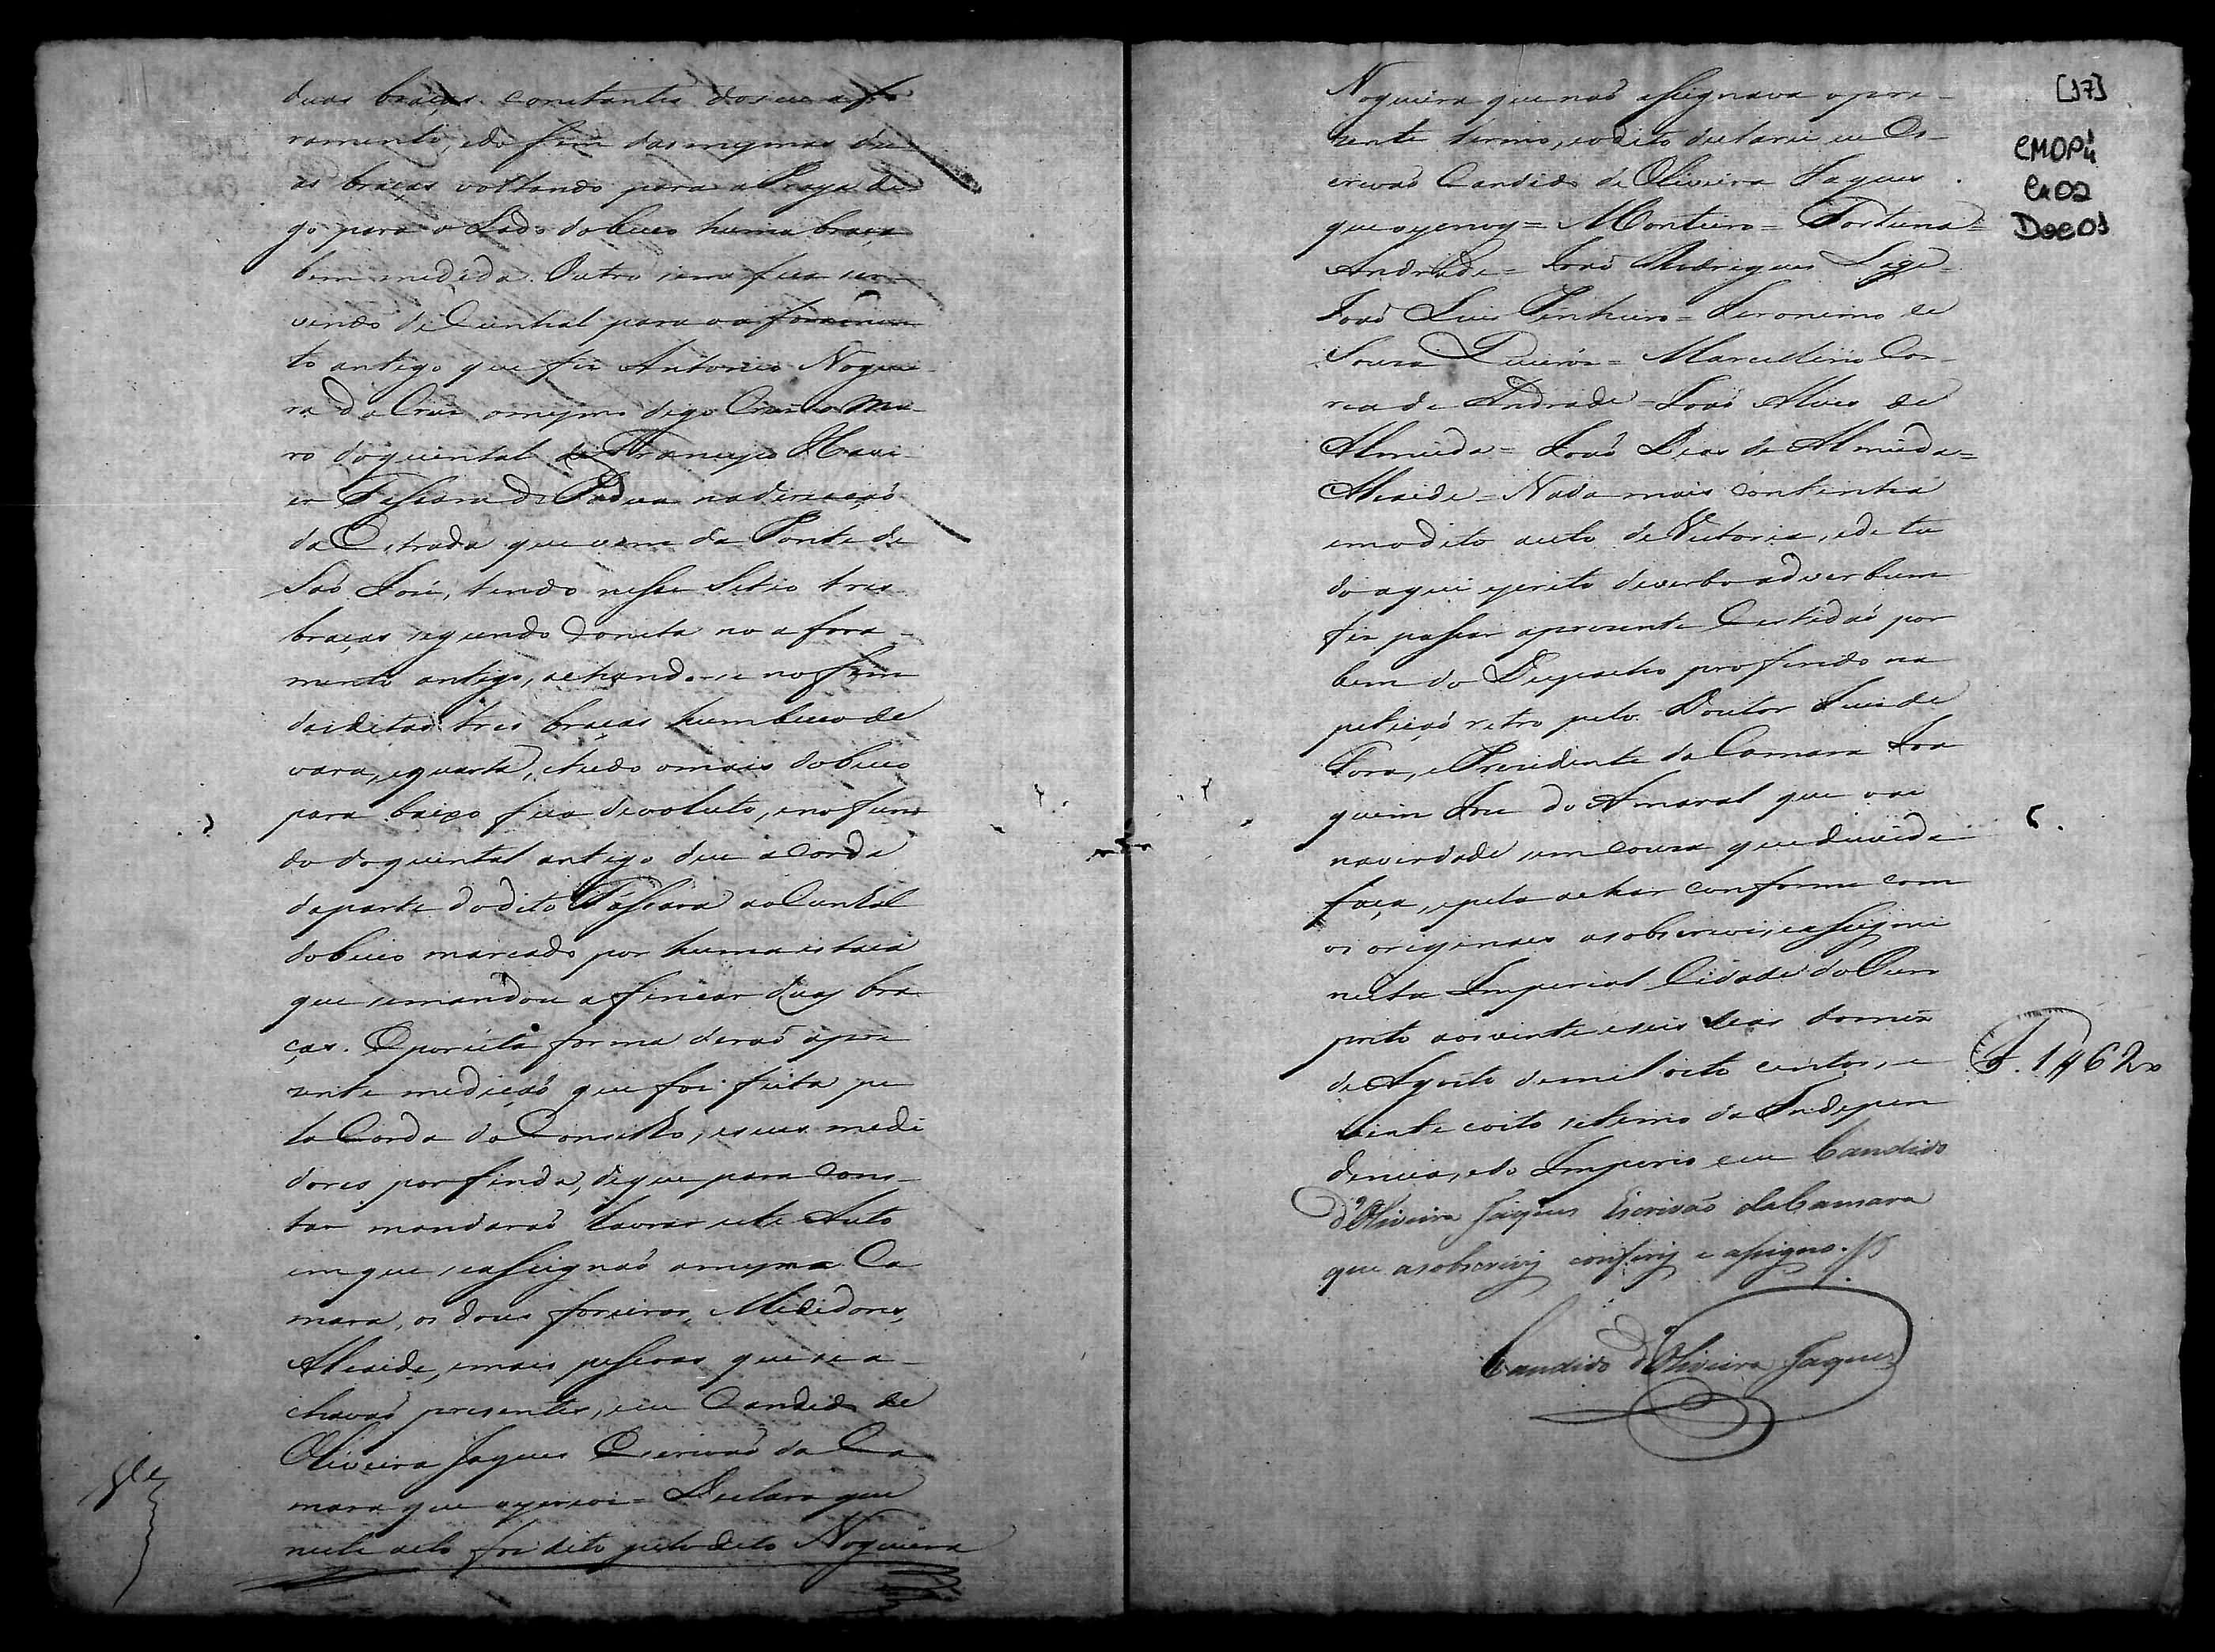 duas braças constantes do seu afo
ramento, e do fim das mesmas du
as braças voltando para a Praça di
go para o Lado do beco huma braça
bem medida. Outro sim fica ser
vendo de Cunhal para o aforamen
to antigo que fes Antonio Noguei
ra da Cruz, o mesmo digo Cruz o Mu-
ro do quintal de Francisco Xavi
er Tassara de Padua na direcçaõ
da Estrada que vem da Ponte de
Saõ José, tendo nesse Sitio tres
braças segundo consta no afora-
mento antigo, achando-se no fim
das ditas tres braças hum beco de
vara, e quarta, e tudo o mais do beco
para baixo fica devoluto, e no fun
do do quintal antigo deu a corda
da parte do dito Tassara ao Cunhal
do beco marcado por huma estaca
que se mandou afincar duas bra
ças. E por esta forma deraõ a pre
zente mediçaõ que foi feita pe
la Corda do Conselho, e seus medi
dores por finda, de que para cons-
tar mandaraõ lavrar este Auto
em que se assignaõ a mesma Ca
mara, os dous foreiros, Medidores,
Alcaide, e mais pessoas que se a-
chavaõ presentes, e eu Candido de
Oliveira Jaques Escrivaõ da Ca
mara que o escrevi = Declaro que
neste acto foi dito pelo dito Nogueira
Nogueira que naõ assignava o pre-
zente termo, e o dito declarei eu Es-
crivaõ Candido de Oliveira Jaques
que o escrevy = Monteiro = Fortuna =
Andrade = Joaõ Rodrigues Lage =
Joaõ Luis Pinheiro = Jeronimo de
Souza Queirós = Marcellino Cor-
rea de Andrade = Joaõ Alves de
Almeida = Joaõ Dias de Almeida =
Alcaide = Nada mais continha
em o dito auto de Vistoria, e de tu
do aqui escrito de verbo adverbum
fis passar a prezente Certidaõ por
bem do Despacho proferido na
petiçaõ retro pelo Doutor Juis de
Fora, e Presidente da Camara Joa
quim Jose do Amaral que vai
na verdade sem cousa que duvida
faça, e pela achar conforme com
os originaes a sobscrevi, e assignei
nesta Imperial Cidade do Ouro
preto aos vinte e seis dias do mez
de Agosto de mil oito centos, e
vinte e oito setimo da Indepen
dencia, e do Imperio e eu Candido
d'Oliveira Jaques Escrivaõ da Camara
que a sobscrevy conferiy e assigno.
Candido d'Oliveira Jaques
[17]
CMOP
Cx 02
Doc 01